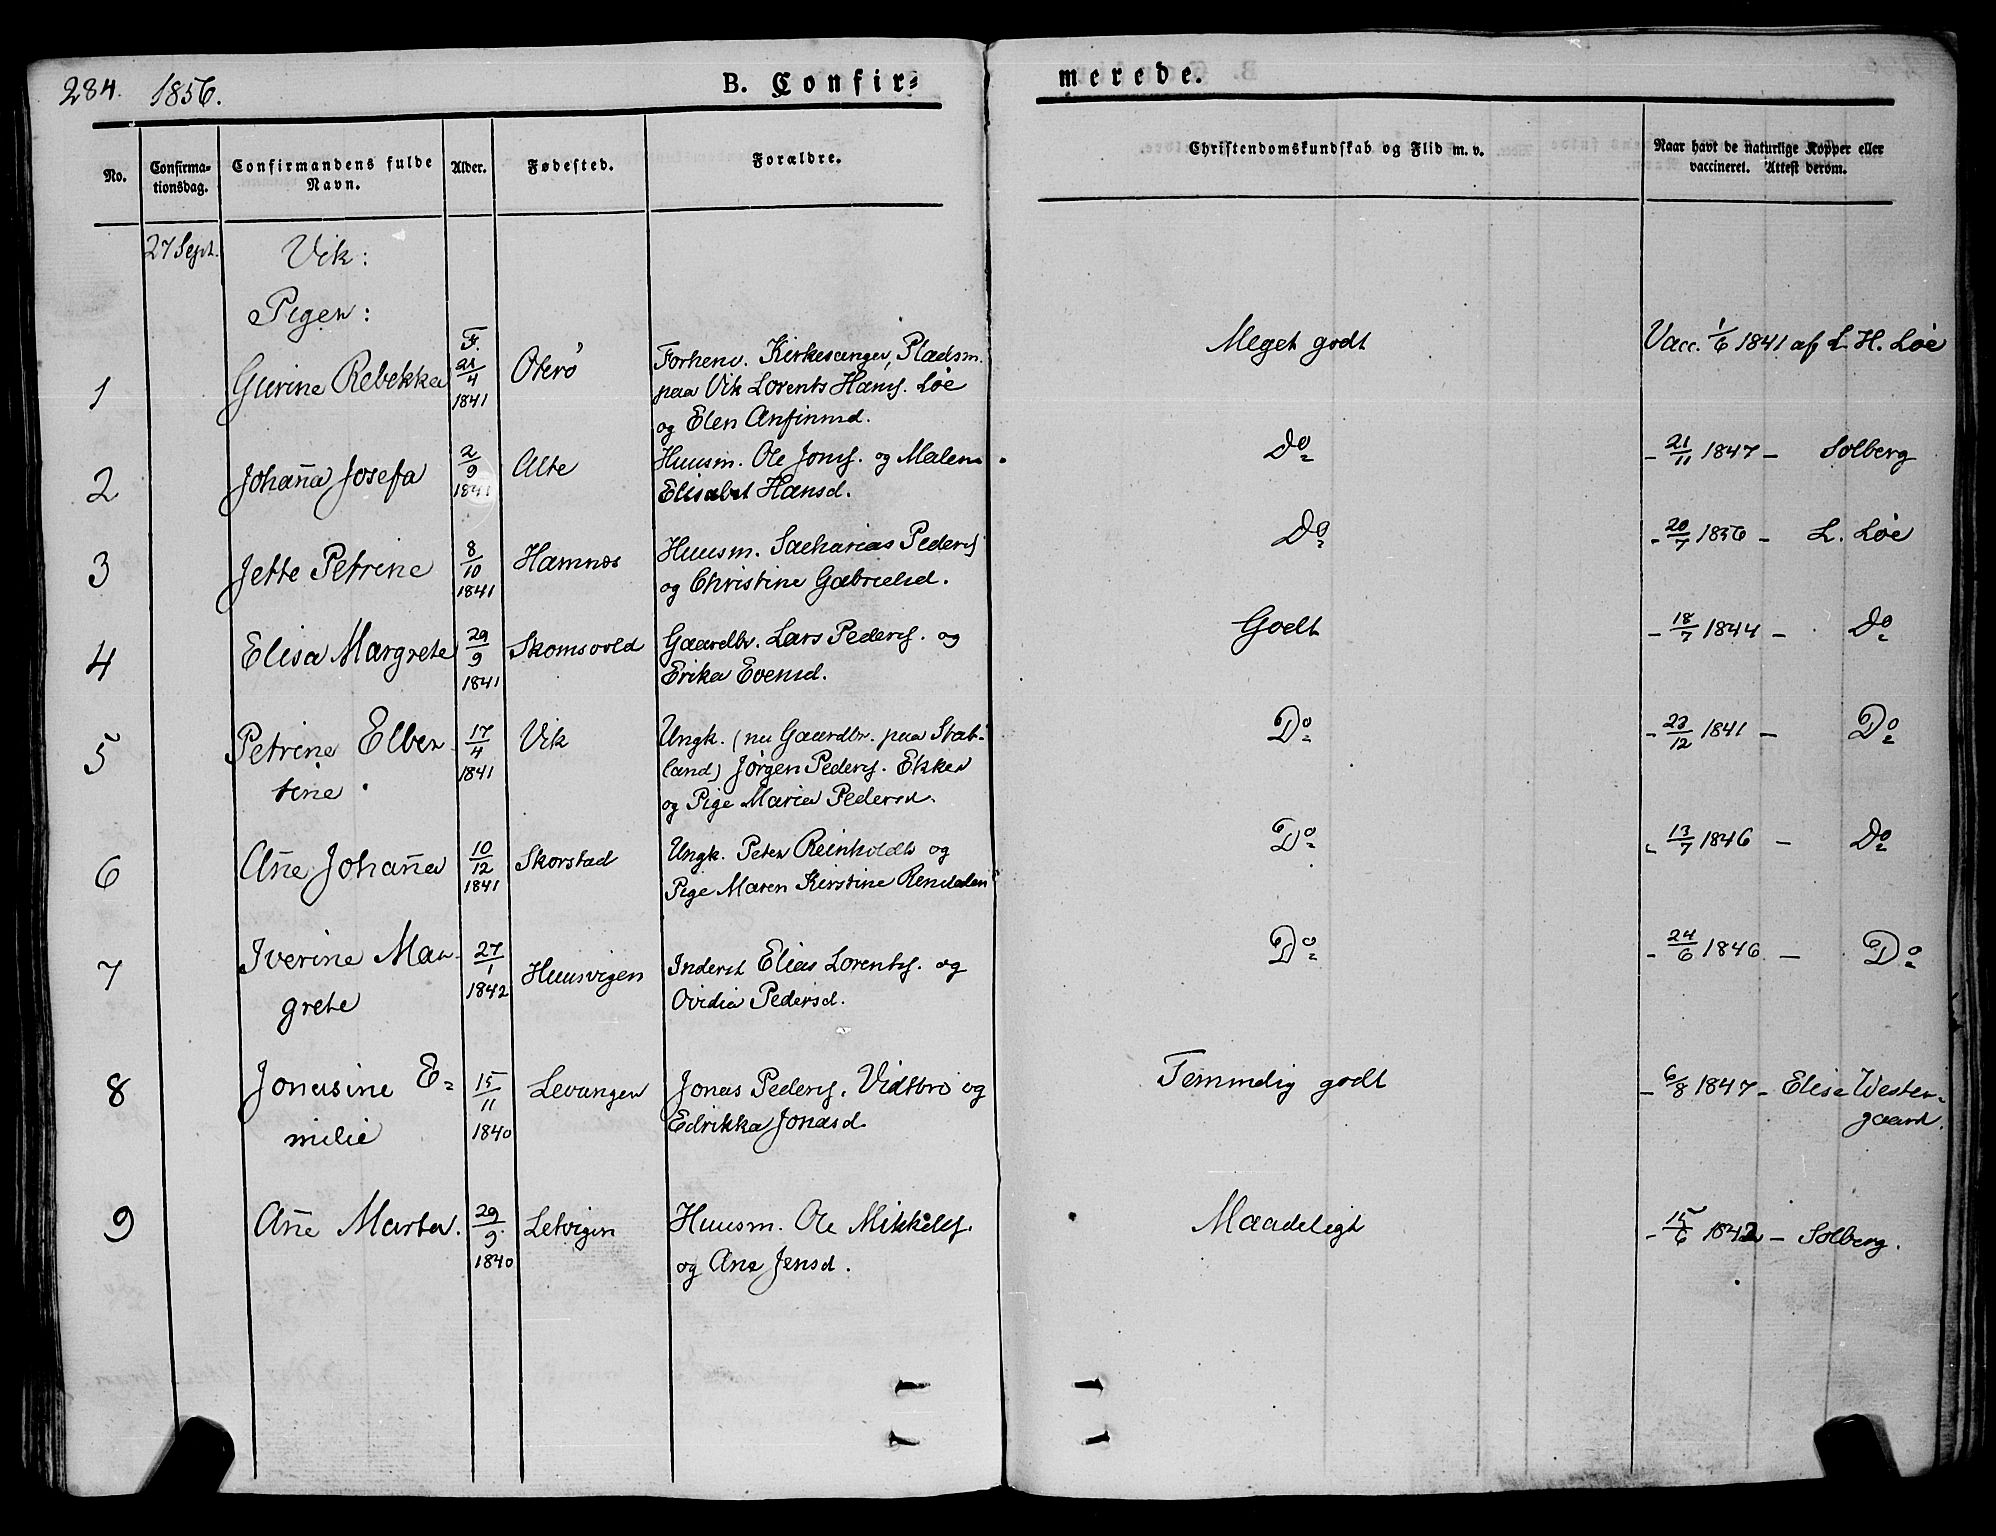 284. 1856.
B. Confir= merede.
No.
Confirma-
tionsdag.
Confirmandens fulde
Navn.
Alder.
Fødested.
Forældre.
Christendomskundskab og Flid m. v.
Naar havt de naturlige Kopper eller
vaccineret. Attest derom.
27 Sept.
Vik:
Piger:
1 Gurine Rebekka F. 21/4 1841 Oterø
Forhenv. Kirkesanger, Pladsm.
paa Vik Lorents Hans. Løe
og Elen Anfinnsd.
Meget godt Vacc. 1/6 1841 af L. H. Løe
2 Johan̄a Josefa 2/9 1841 Alte
Huusm. Ole Jons. og Malena
Elisabet Hansd.
Do - 21/11 1847 - Solberg
3 Jette Petrine 8/10 1841 Hamnes
Huusm. Sacharias Peders
og Christine Gabrielsd.
Do - 20/7 1856 - L. Løe
4 Elisa Margrete 29/9 1841 Skomsvold
Gaardbr. Lars Peders. og
Erika Evensd.
Godt - 18/7 1844 - Do
5 Petrine Elber-
tine 17/4 1841 Vik
Ungk. (nu Gaardbr. paa Stab-
land) Jørgen Peders. Ekker
og Pige Maria Pedersd.
Do - 22/12 1841 - Do
6 An̄e Johan̄a 10/12 1841 Skorstad
Ungk. Peter Reinholdts og
Pige Maren Kirstine
Do - 13/7 1846 - Do
7 Iverine Mar-
grete 27/1 1842 Huusvigen
Inderst Elias Lorents. og
Ovidia Pedersd.
Do - 24/6 1846 - Do
8 Jonasine E=
milie 15/11 1840 Levangen
Jonas Peders. Vidsbro og
Edrikka Jonasd.
Temmelig godt - 6/8 1847 - Elise Wester-
gaard.
9 An̄e Marta. 29/9 1840 Letvigen
Huusm. Ole Mikkels.
og Ane Jensd.
Maadeligt - 15/6 1842 - Solberg.